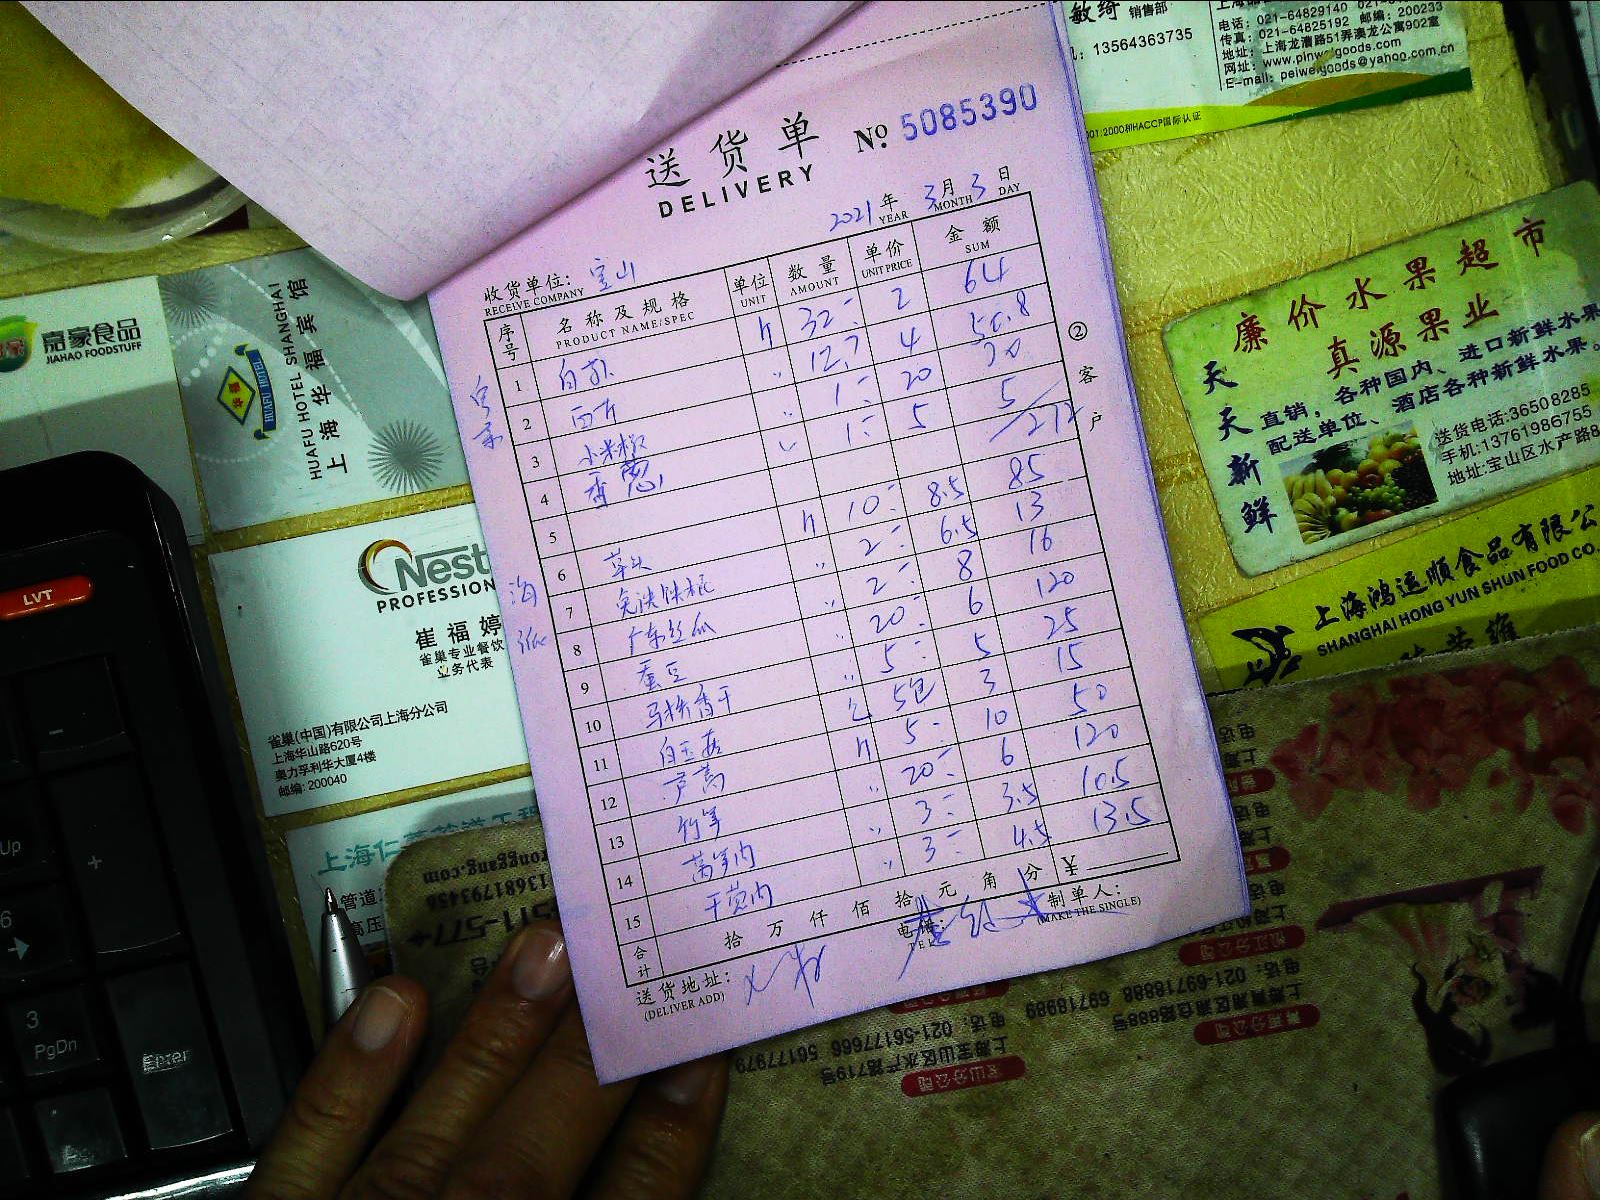 送货单
DELIVERY
No. 5085390
2021 年 3 月 3 日
YEAR MONTH DAY
收货单位: 宝山
RECEIVE COMPANY
序号 名称及规格 单位 数量 单价 金额
PRODUCT NAME/SPEC UNIT AMOUNT UNIT PRICE SUM
1 32 2 64
2 12.7 4 50.8
3 小米椒 1 20 20
4 香葱 1 5 5
212
5
6 草头 10 8.5 85
7 2 6.5 13
8 广东丝瓜 2 8 16
9 蚕豆 20 6 120
10 马桥香干 5 5 25
11 白玉菇 5包 3 15
12 芦蒿 5 10 50
13 竹笋 20 6 120
14 莴笋内 3 3.5 10.5
15 3 4.5 13.5
合计 拾 万 仟 佰 拾 元 角 分 ¥
送货地址:
(DELIVER ADD)
电话:
TEL
制单人:
(MAKE THE SINGLE)
② 客户
敏绮 销售部
13564363735
电话: 021-64829140
传真: 021-64825192 邮编: 200233
地址: 上海龙漕路51弄澳龙公寓902室
网址: www.pinweigoods.com
E-mail: peiweigoods@yahoo.com.cn
001:2000和HACCP国际认证
廉价水果超市
真源果业
天天新鲜
直销,各种国内、进口新鲜水果
配送单位、酒店各种新鲜水果。
送货电话:36508285
手机:13761986755
地址:宝山区水产路8
上海鸿运顺食品有限公
SHANGHAI HONG YUN SHUN FOOD CO.
嘉豪食品
JIAHAO FOODSTUFF
HUAFU HOTEL
HUAFU HOTEL SHANGHAI
上海华福宾馆
Nest
PROFESSION
崔福婷
雀巢专业餐饮
业务代表
雀巢(中国)有限公司上海分公司
上海华山路620号
奥力孚利华大厦4楼
邮编: 200040
管道
高压
LVT
Up
+
-
6
3
PgDn
Enter
宝山分公司
上海宝山区水产路719号
电话: 021-56177666 56177979
电话: 021-69718888 69718989